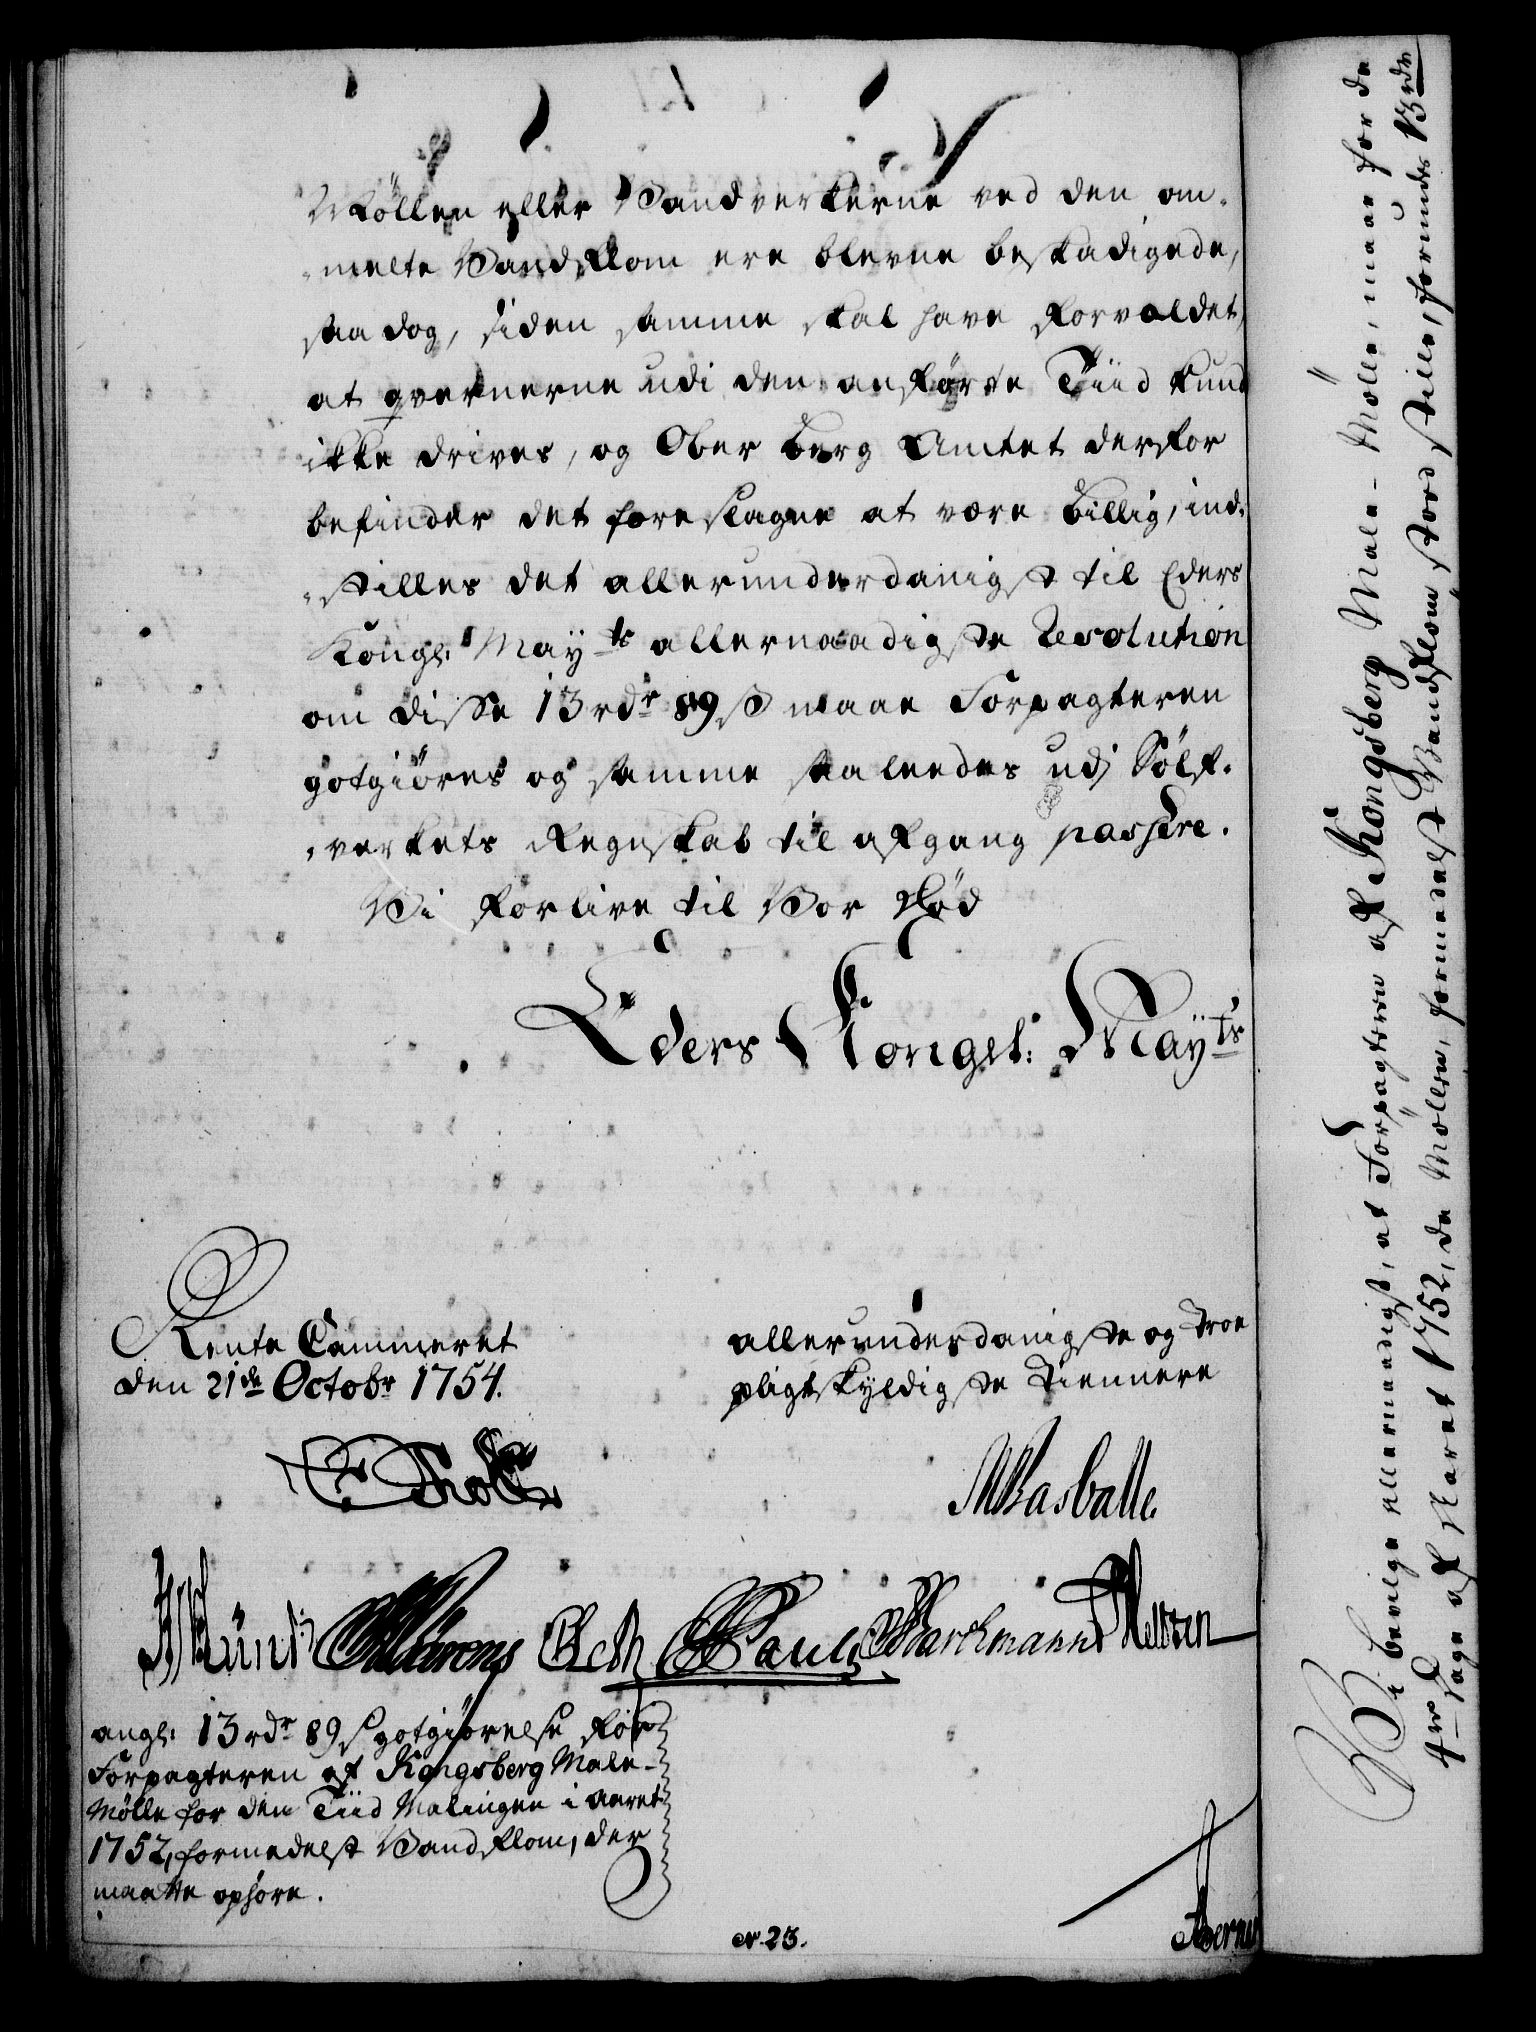 Møllen eller Vandverkerne ved den om-
-melte Vandflom ere blevne beskadigede,
saa dog, siden samme skal have forvoldet,
at qvernerne udi den anførte Tiid kund
ikke drives, og Ober Berg Amtet derfor
befinder det foreslagne at være billig, ind-
-stilles det allerunderdanigst til Eders
Kongl: Mayts allernaadigste Resolution
om disse 13 rdr 89 s maae Forpagteren
gotgiøres og samme saaleedes udj Sølf-
-verkets Regnskab til afgang passere.
Vi forlive til Vor Død
Eders Kongel: Mayts
Rente Cammeret
den 21de Octobr 1754.
allerunderdanigste og Troe
pligtskyldigste Tiennere
Holst
Rasballe
angl: 13 rdr 89 s gotgiørelse for
Forpagteren af Kongsberg Male-
Mølle for den Tiid Malingen i aaret
1752, formedelst Vandflom, der
maatte ophøre.
N. 23.
Vi bevilge allernaadigst, at Forpagteren af Kongsberg Male-Mølle, maae for de
4re Uger af Aaret 1752, da Møllen, formedelst Vandflom stoed stille, forundes 13 rdr